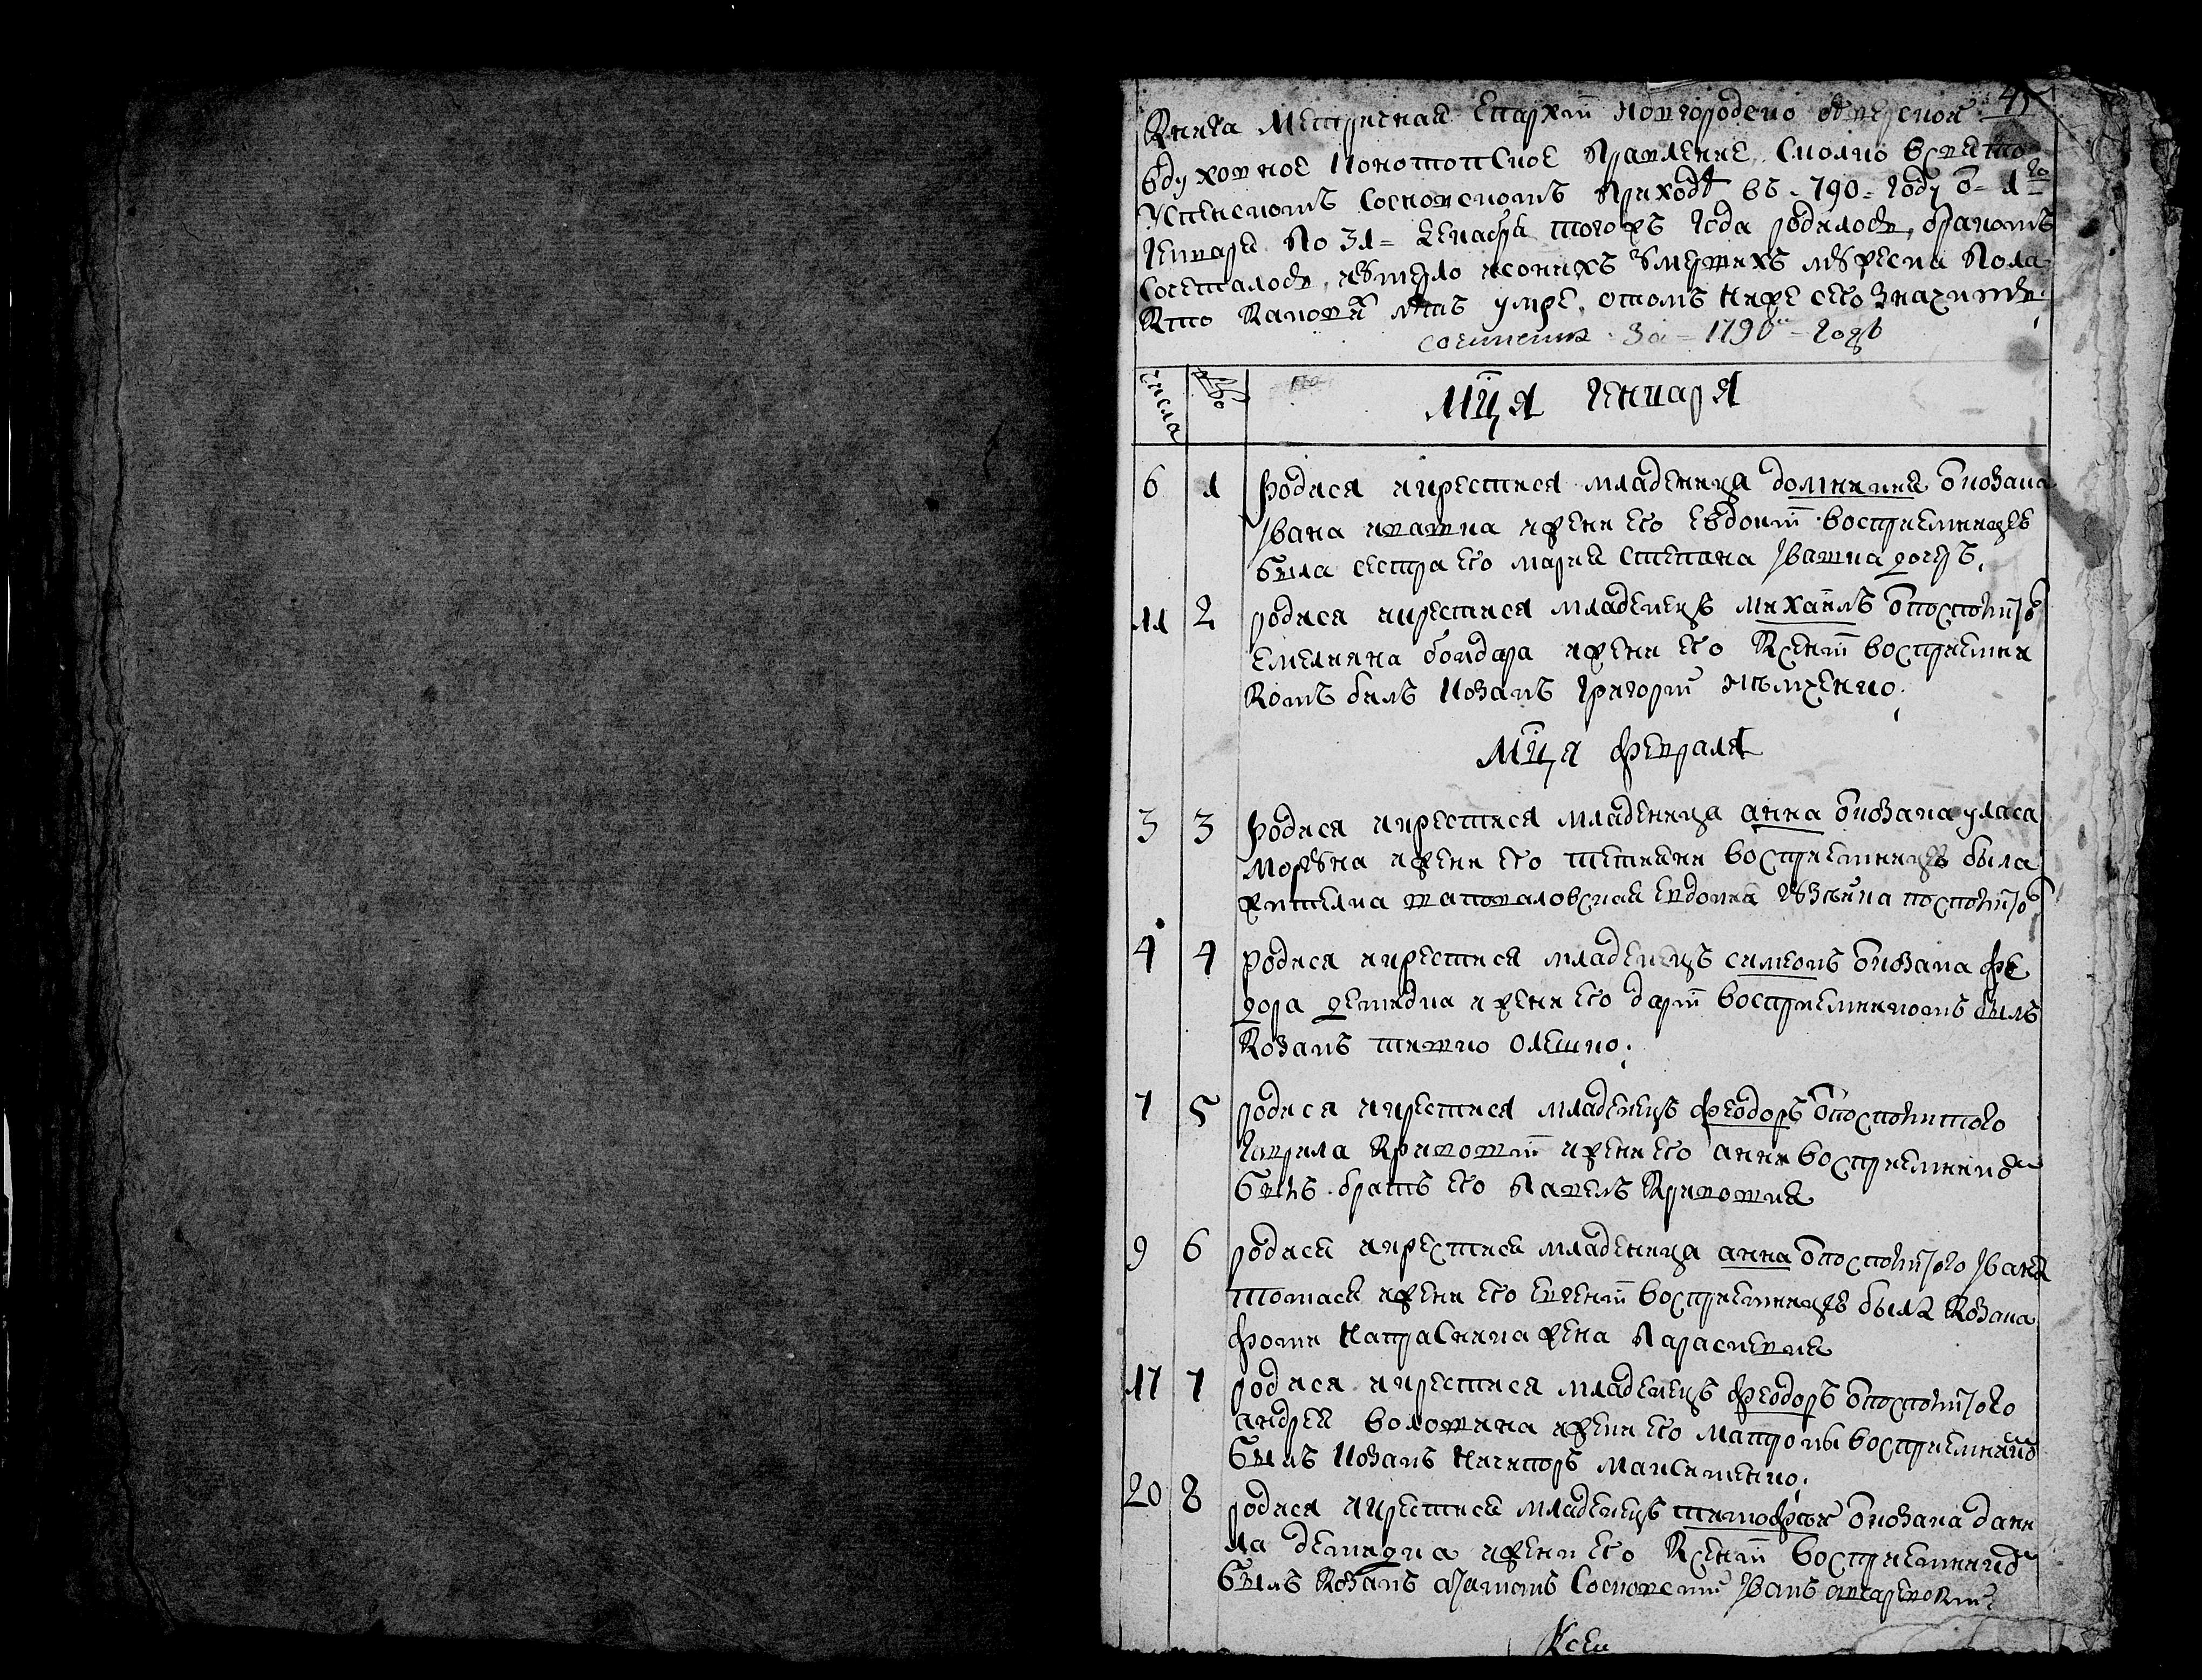 45
Книга Метрисчная Епархіи Новгородско Сѣверской
вду ховное Конотопское Правление. Смолно Свято
Успенскомъ Сосновскомъ Приходѣ въ - 790 = году ѿ = 1го
Генваря по 31 = Декабря тогожъ года родилось, бракомъ
Сочеталось, и умерло
Кто умре, о томъ ниже сего значитъ.
за = 1790 = годъ
числа
Мця Генваря
6 1 Родися икрестися младеница домникия ѿ козака
Ивана ивашка ижени его евдокіи восприемницею
была сестра его мария степана Ивашка дочерь,
11 2 родися икрестися младенецъ михаилъ ѿ посполитого
емелияна бондара ижени его Ксеніи восприемни
комъ билъ козакъ григорій
Мця февраля
3 3 Родися икрестися младеница анна ѿ козака уласа
ижени его тетияни восприемницею была
жителка шаповаловская евдокия посполитого
4 4 родися икрестися младенецъ симеонъ ѿ козака фе
дора демидка ижени его даріи восприемникомъ былъ
Козакъ тишко олешко.
7 5 родися икрестися младенецъ феодоръ ѿ посполитого
гаврила Кривошіи ижени его анни восприемникомъ
былъ братъ его Павелъ Кривошия
9 6 родися икрестися младеница анна ѿ посполитого Ивана
ижени его евгеніи восприемницею была козака
фоми напраСника жена Параскевия
17 7 родися икрестися младенецъ феодоръ ѿ посполитого
андрея волошина ижени его матроны восприемникомъ
былъ козакъ Ничипоръ максименко.
20 8 родися икрестися младенецъ тимофей ѿ козака дани
ла демидка ижени его Ксеніи восприемникомъ
былъ козакъ Сосновскій Иванъ
Ксен